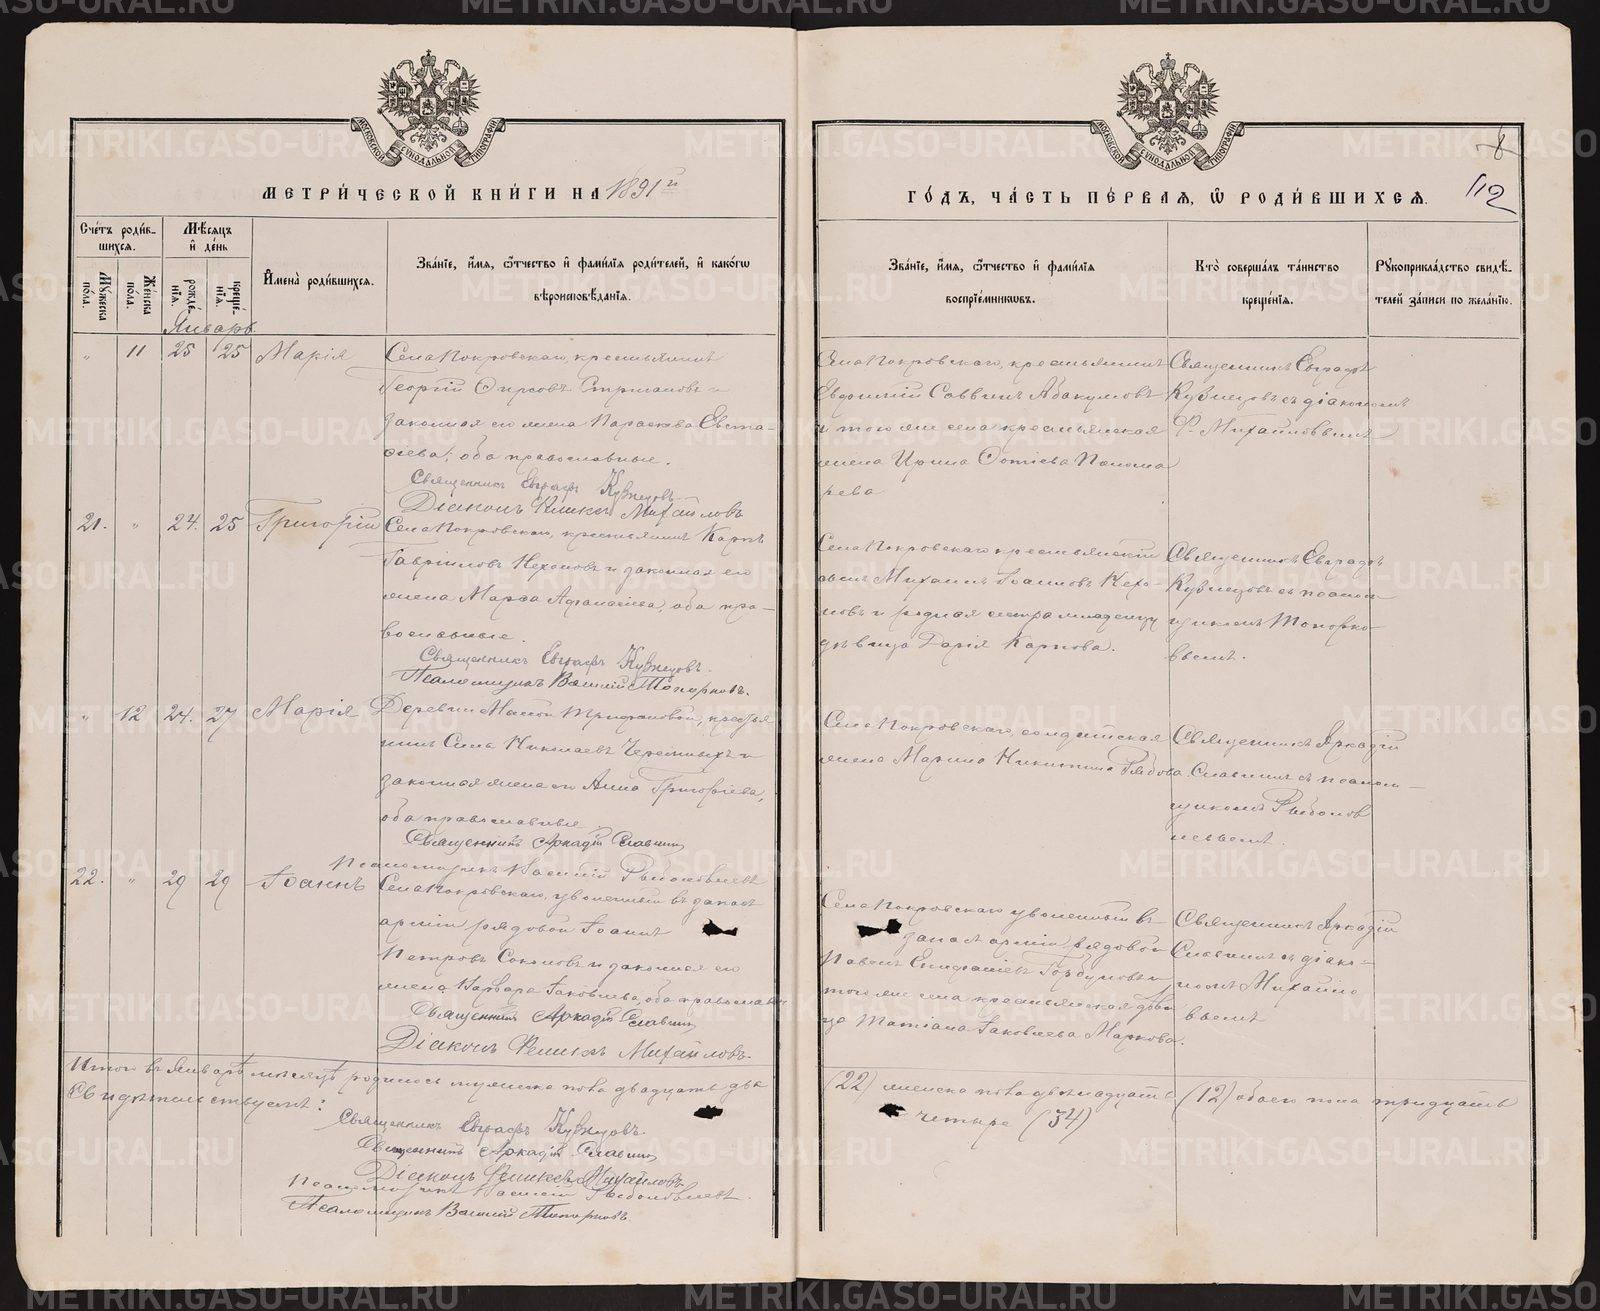 МЕТРИ́ЧЕСКОЙ КНИ́ГИ НА 1891й
Сче́тъ роди́в-
шихсѧ.
Мѣ́сѧцъ
и҆ де́нь
Мꙋ́жеска
по́ла.
Же́нска
по́ла.
рожде́-
нїѧ.
креще́-
нїѧ.
И҆мена̀ роди́вшихсѧ.
Зва́нїе, и҆́мѧ, ѻ҆́тчество и҆ фами́лїѧ роди́телей, и҆ како́гѡ
вѣроисповѣ́данїѧ.
Январь.
" 11 25 25 Марія Села Покровскаго, крестьянинъ
Георгій Фирсовъ Стригановъ и
законная его жена Параскева Евста-
фіева; оба православные.
Священникъ Евграфъ Кузнецовъ
Діаконъ Феликсъ Михайловъ
21. " 24. 25 Григорій Села Покровскаго, крестьянинъ Карпъ
Гавріиловъ Нехоновъ и законная его
жена Марфа Афанасіева, оба пра-
вославные.
Священникъ Евграфъ Кузнецовъ.
Псаломщикъ Василій Топорковъ.
" 12 24. 27 Марія Деревни Малой Трифановой, крестья
нинъ Сила Николаевъ Черемныхъ и
законная жена его Анна Григорьева,
оба православные
Священникъ Аркадій Славнинъ
Псаломщикъ Василій
22. " 29 29 Іоаннъ Села Покровскаго, уволенный въ запасъ
арміи рядовой Іоаннъ
Петровъ Соколовъ и законная его
жена Варвара Іаковлева, оба православные
Священникъ Аркадій Славнинъ
Діаконъ Феликсъ Михайловъ.
Итого въ Январѣ мѣсяцѣ родилось мужеска пола двадцать два
Свидѣтельствуемъ:
Священникъ Евграфъ Кузнецовъ.
Священникъ Аркадій Славнинъ
Діаконъ Феликсъ Михайловъ.
Псаломщикъ Василій
Псаломщикъ Василій Топорковъ.
8
112
ГО́ДЪ, ЧА́СТЬ ПЕ́РВАѦ, Ѡ҆ РОДИ́ВШИХСѦ.
Зва́нїе, и҆́мѧ, ѻ҆́тчество и҆ фами́лїѧ
воспрїе́мникѡвъ.
Кто̀ соверша́лъ та́инство
креще́нїѧ.
Рꙋкоприкла́дство свидѣ́-
телей за́писи по жела́нїю.
Села Покровскаго, крестьянинъ
Евдокимъ Саввинъ Абакумовъ
и того же села крестьянская
жена Ирина Фотіева Понома
рева
Священникъ Евграфъ
Кузнецовъ съ діакономъ
Ф. Михайловымъ
Села Покровскаго крестьянскій
сынъ Михаилъ Іоанновъ Нехо-
новъ и родная сестра младенцу
дѣвица Дарія Карпова.
Священникъ Евграфъ
Кузнецовъ съ псалом
щикомъ Топорко-
вымъ.
Села Покровскаго, солдатская
жена Марина Никитина Рябова.
Священникъ Аркадій
Славнинъ съ псалом-
щикомъ
Села Покровскаго уволенный въ
запасъ арміи рядовой
Павелъ Епифаніевъ Горбуновъ и
того же села крестьянская дѣви
ца Татіана Іаковлева Маркова.
Священникъ Аркадій
Славнинъ съ діако-
номъ Михайло
вымъ
(22) женска пола двѣнадцать (12) обоего пола тридцать
четыре (34)